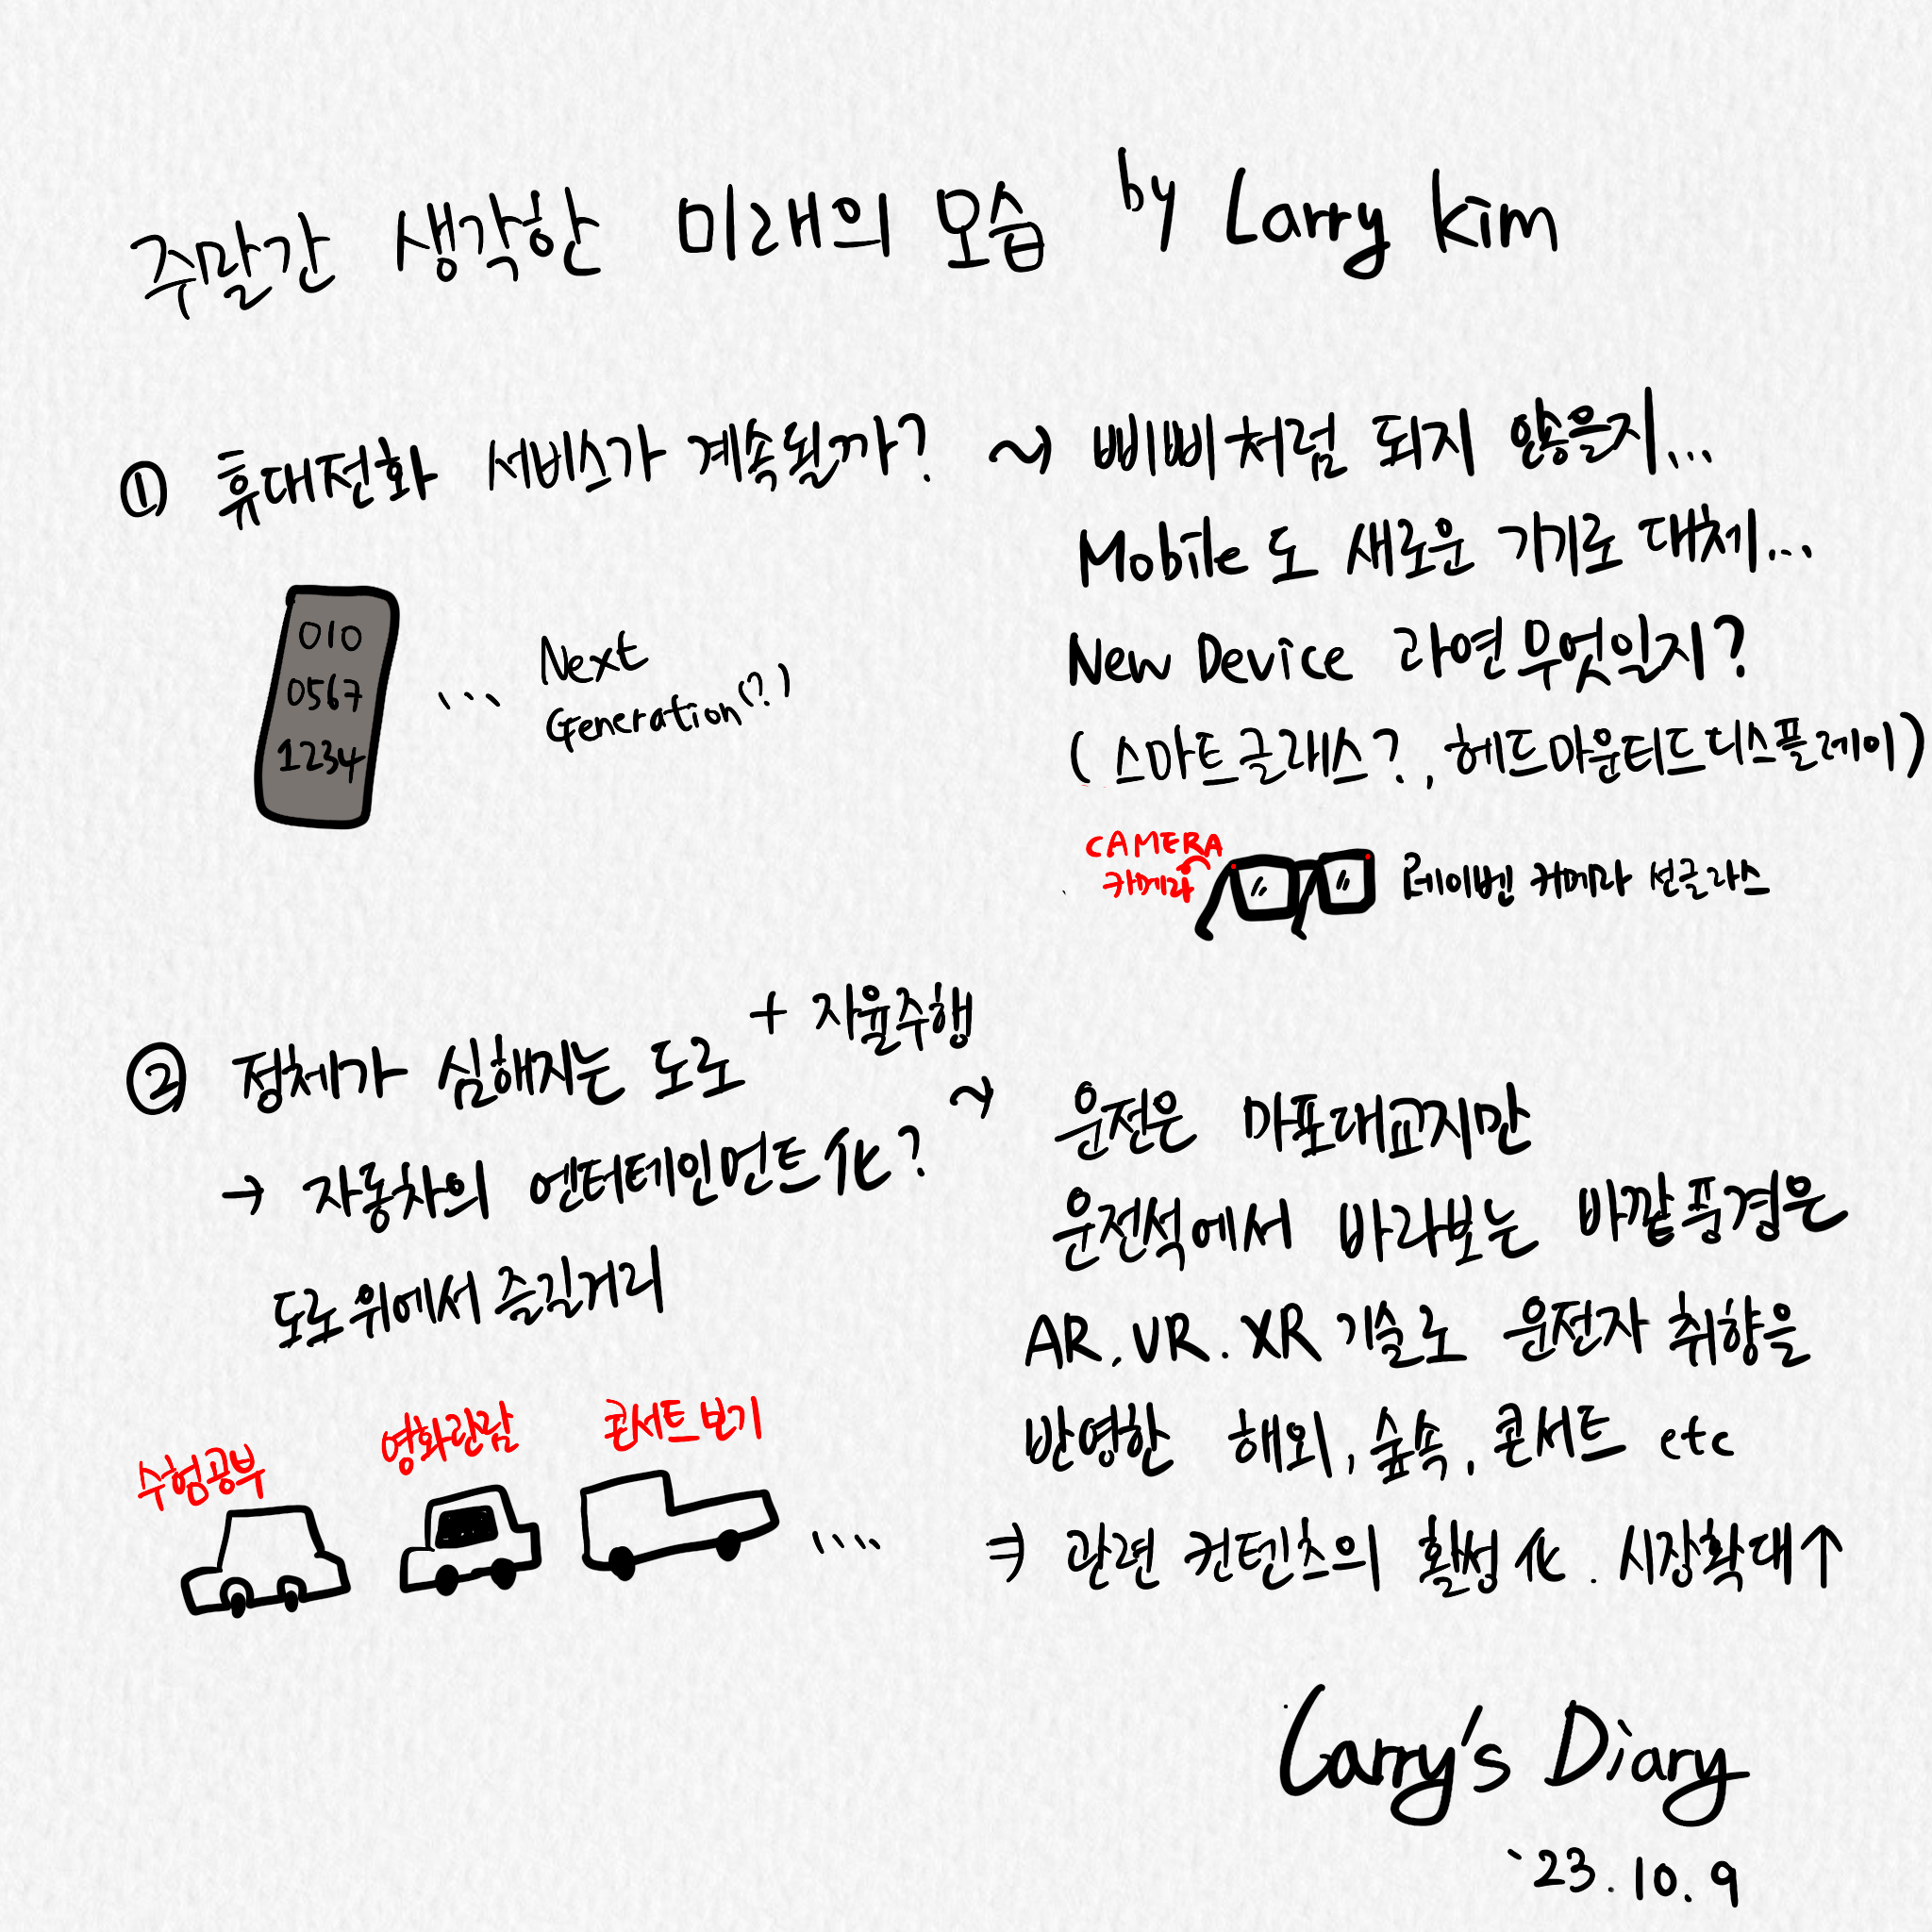 주말간 생각한 미래의 모습 by Larry Kim
① 휴대전화 서비스가 계속될까? ~> 삐삐처럼 되지 않을지...
Mobile도 새로운 기기로 대체...
New Device 과연 무엇일지?
(스마트글래스?, 헤드마운티드디스플레이)
010
0567
1234
... Next
Generation(?)
CAMERA
카메라
레이벤 카메라 선글라스
② 정체가 심해지는 도로 + 자율주행
→ 자동차의 엔터테인먼트化?
도로위에서 즐길거리
수험공부
영화관람
콘서트보기
....
~> 운전은 마포대교지만
운전석에서 바라보는 바깥풍경은
AR, VR. XR 기술로 운전자 취향을
반영한 해외, 숲속, 콘서트 etc
⇒ 관련 컨텐츠의 활성化. 시장확대↑
Larry's Diary
`23.10.9